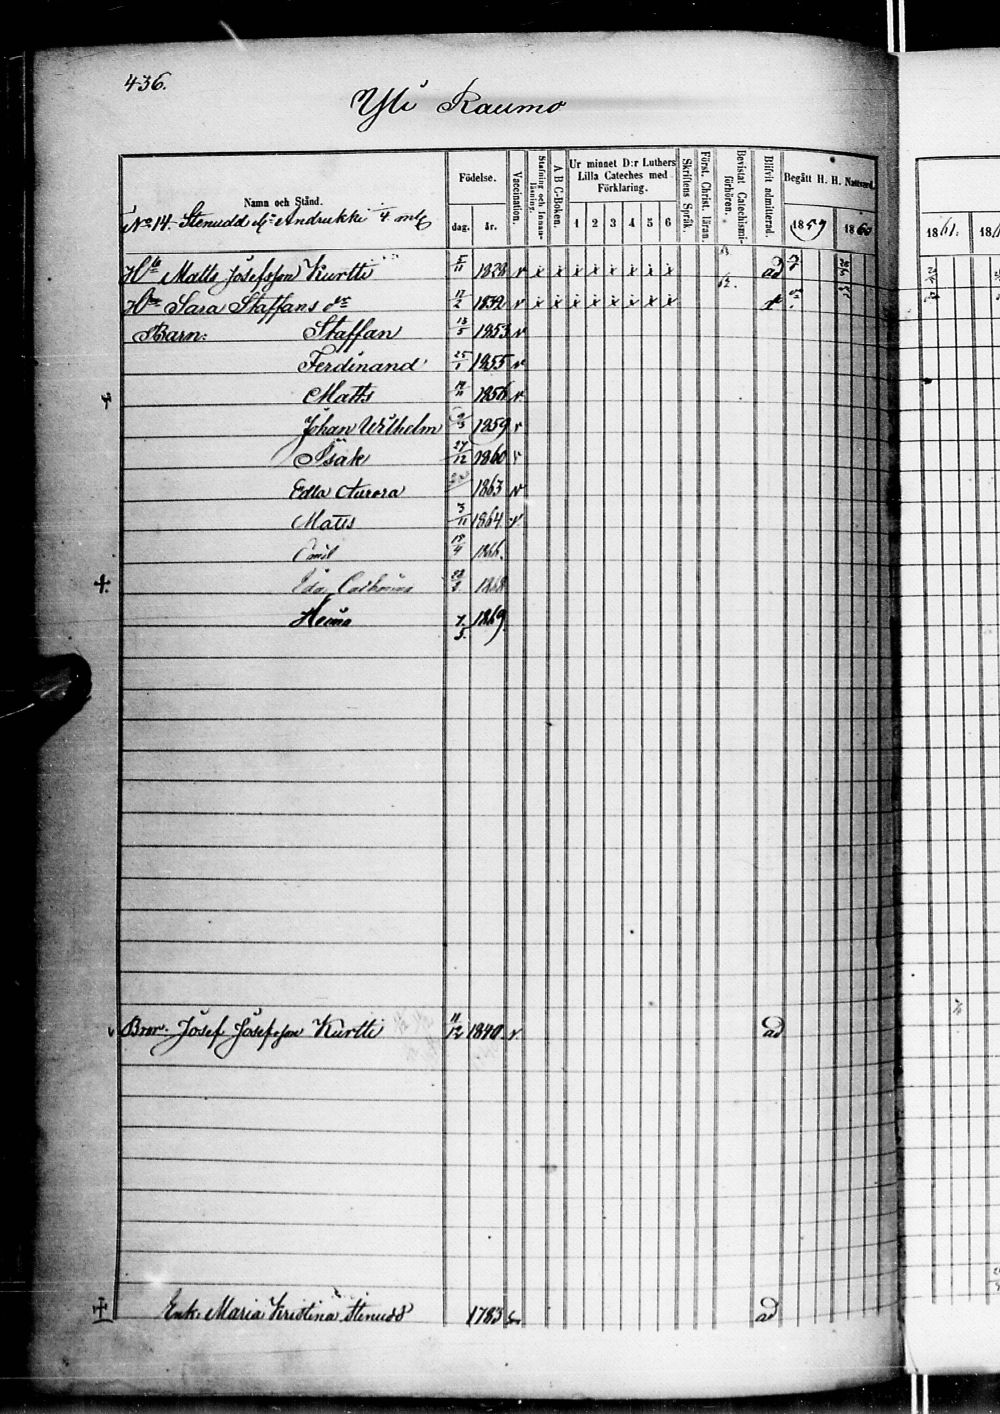 436.
Yli Raumo
Namn och Stånd.
Födelse.
dag. år.
Vaccination.
Stafning och Innan-läsning.
A B C-Boken.
Ur minnet D:r Luthers
Lilla Cateches med
Förklaring.
1 2 3 4 5 6
Skriftens Språk.
Först. Christ. läran.
Bevistat Catechismi-förhören.
Blifvit admitterad.
Begått H. H. Nattvard.
1859 1860
1861.
No 14. Stenudd Andrukki 4. mtl
Matts Josefsson Kurtti 5/11 1828 v x x x x x x x x ad
Sara Staffans dr 17/2 1832 v x x x x x x x x
Barn: Staffan 13/5 1853 v
Ferdinand 25/1 1855 v
Matts 1856 v
Johan Wilhelm 1859 v
Isak 27/12 1860 v
Edla Aurora 1863 v
Matts 3/11 1864 v
Emil 18/4 1866.
Ida 1868
Heina 7/5 1869
Bror. Josef Josefsson Kurtti 11/12 1840. v ad
Enk. Maria Kristina Stenudd 1783 ad